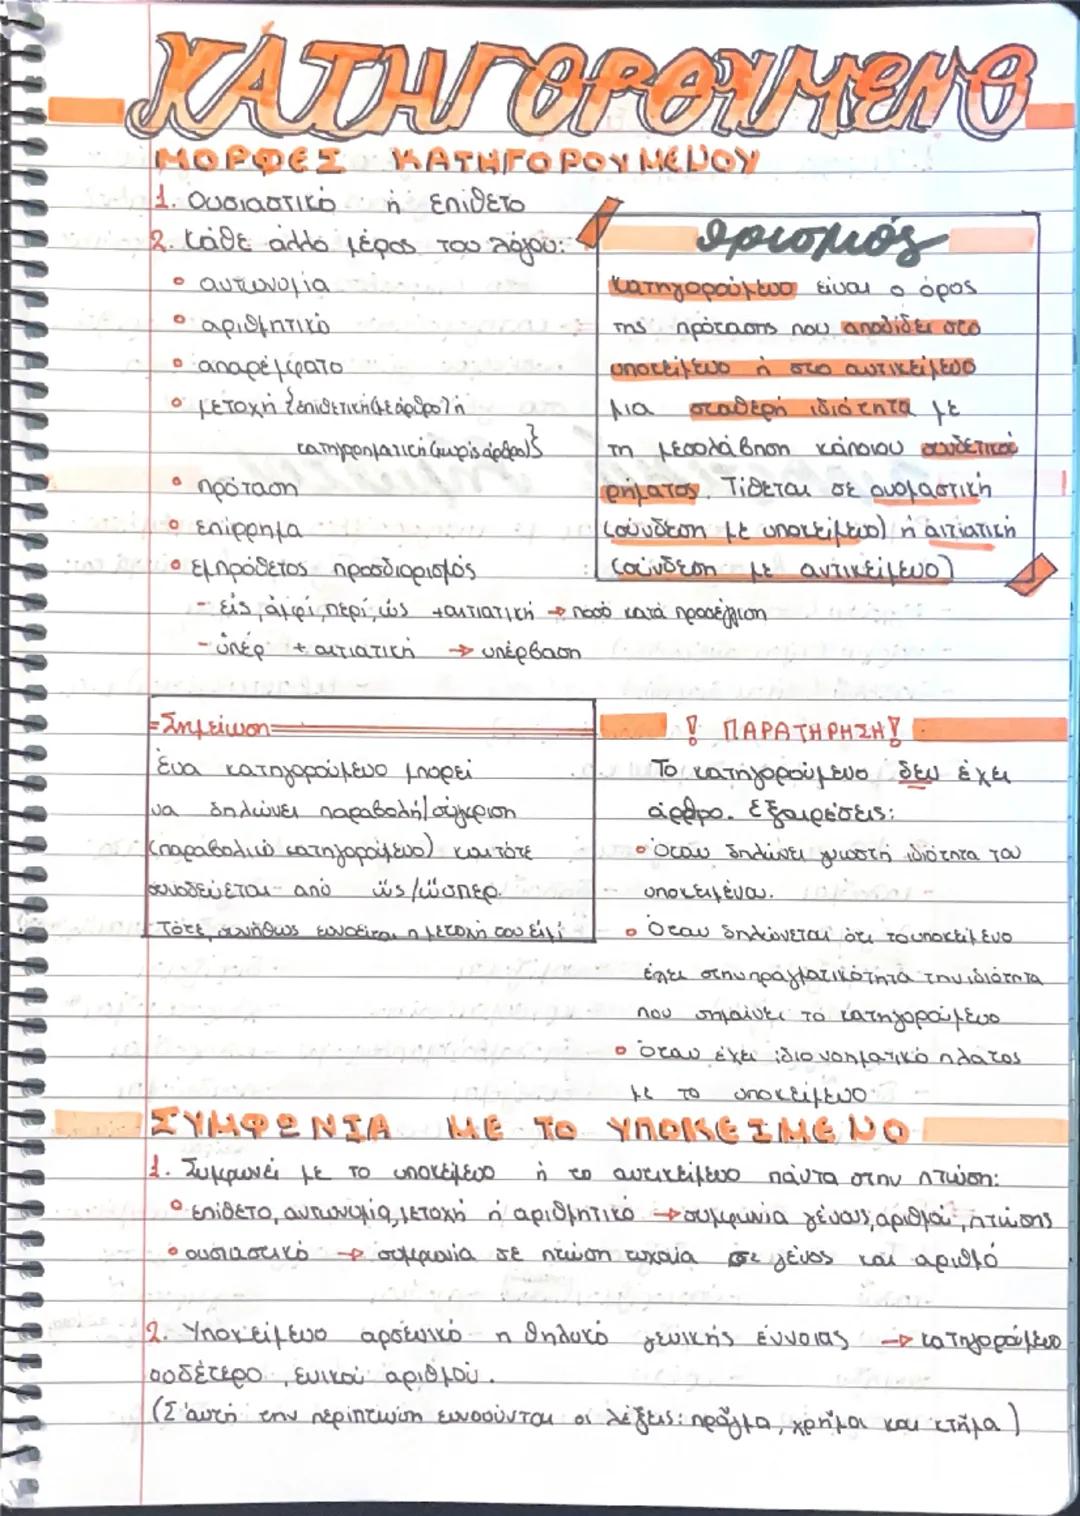 ΚΑΤΗΓΟΡΟΥΜΕΝΟ
ΜΟΡΦΕΣ ΚΑΤΗΓΟΡΟΥΜΕΝΟΥ
1. Ουσιαστικό ή επίθετο
2. Κάθε άλλο μέρος του λόγου:
• αντωνυμία
• αριθμητικό
• απαρέμφατο
• μετοχή {επιθετική(με άρθρο) ή
κατηγορηματική(χωρίς άρθρο)}
• πρόταση
• επίρρημα
• εμπρόθετος προσδιορισμός
- εἰς, ἀμφί, περί, ὡς +αιτιατική → ποσό κατά προσέγγιση
- ὑπέρ + αιτιατική → υπέρβαση
Ορισμός
Κατηγορούμενο είναι ο όρος
της πρότασης που αποδίδει στο
υποκείμενο ή στο αντικείμενο
μια σταθερή ιδιότητα με
τη μεσολάβηση κάποιου συνδετικού
ρήματος. Τίθεται σε ονομαστική
(σύνδεση με υποκείμενο) ή αιτιατική
(σύνδεση με αντικείμενο)
=Σημείωση=
Ένα κατηγορούμενο μπορεί
να δηλώνει παραβολή/σύγκριση
(παραβολικό κατηγορούμενο) και τότε
συνοδεύεται από ὡς/ὥσπερ.
Τότε, συνήθως εννοείται η μετοχή του εἰμί
! ΠΑΡΑΤΗΡΗΣΗ!
Το κατηγορούμενο δεν έχει
άρθρο. Εξαιρέσεις:
• Όταν δηλώνει γνωστή ιδιότητα του
υποκειμένου.
• Όταν δηλώνεται ότι το υποκείμενο
έχει στην πραγματικότητα την ιδιότητα
που σημαίνει το κατηγορούμενο
• όταν έχει ίδιο νοηματικό πλάτος
με το υποκείμενο
ΣΥΜΦΩΝΙΑ ΜΕ ΤΟ ΥΠΟΚΕΙΜΕΝΟ
1. Συμφωνεί με το υποκείμενο ή το αντικείμενο πάντα στην πτώση:
• επίθετο, αντωνυμία, μετοχή ή αριθμητικό → συμφωνία γένους, αριθμού, πτώσης
• ουσιαστικό → συμφωνία σε πτώση τυχαία σε γένος και αριθμό
2. Υποκείμενο αρσενικό η θηλυκό γενικής έννοιας → κατηγορούμενο
ουδέτερο, ενικού αριθμού.
(Σ'αυτή την περίπτωση εννοούνται οι λέξεις: πρᾶγμα, χρῆμα και κτῆμα)